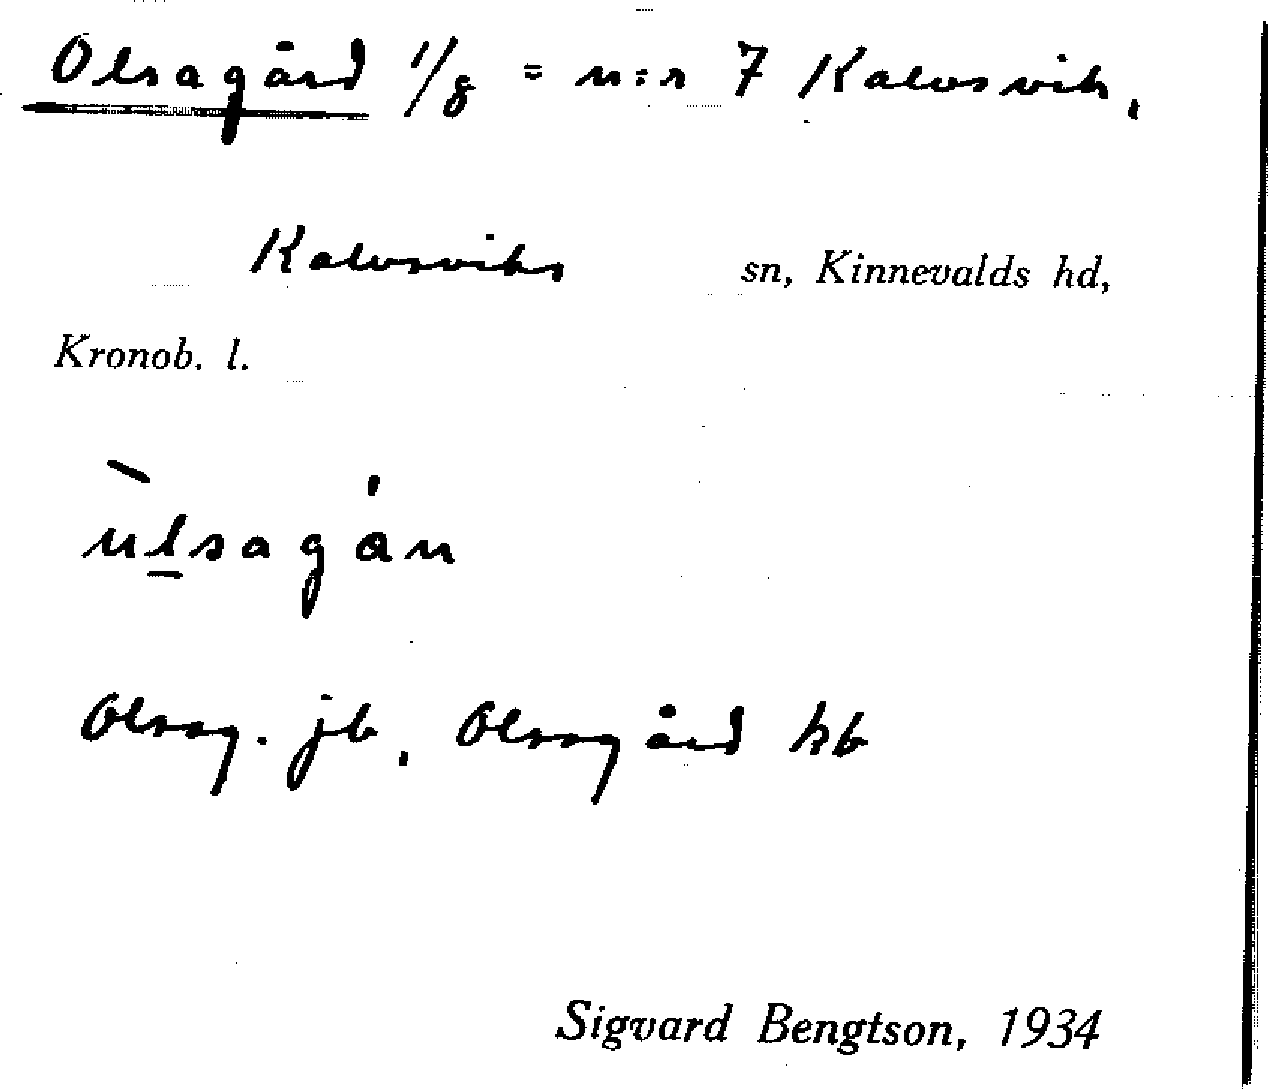 Olsagård 1/8 = n:r 7 Kalvsvik,
Kalvsviks sn, Kinnevalds hd,
Kronob. l.
ùlsagán
Olsag. jb, Olsagård kb
Sigvard Bengtson, 1934